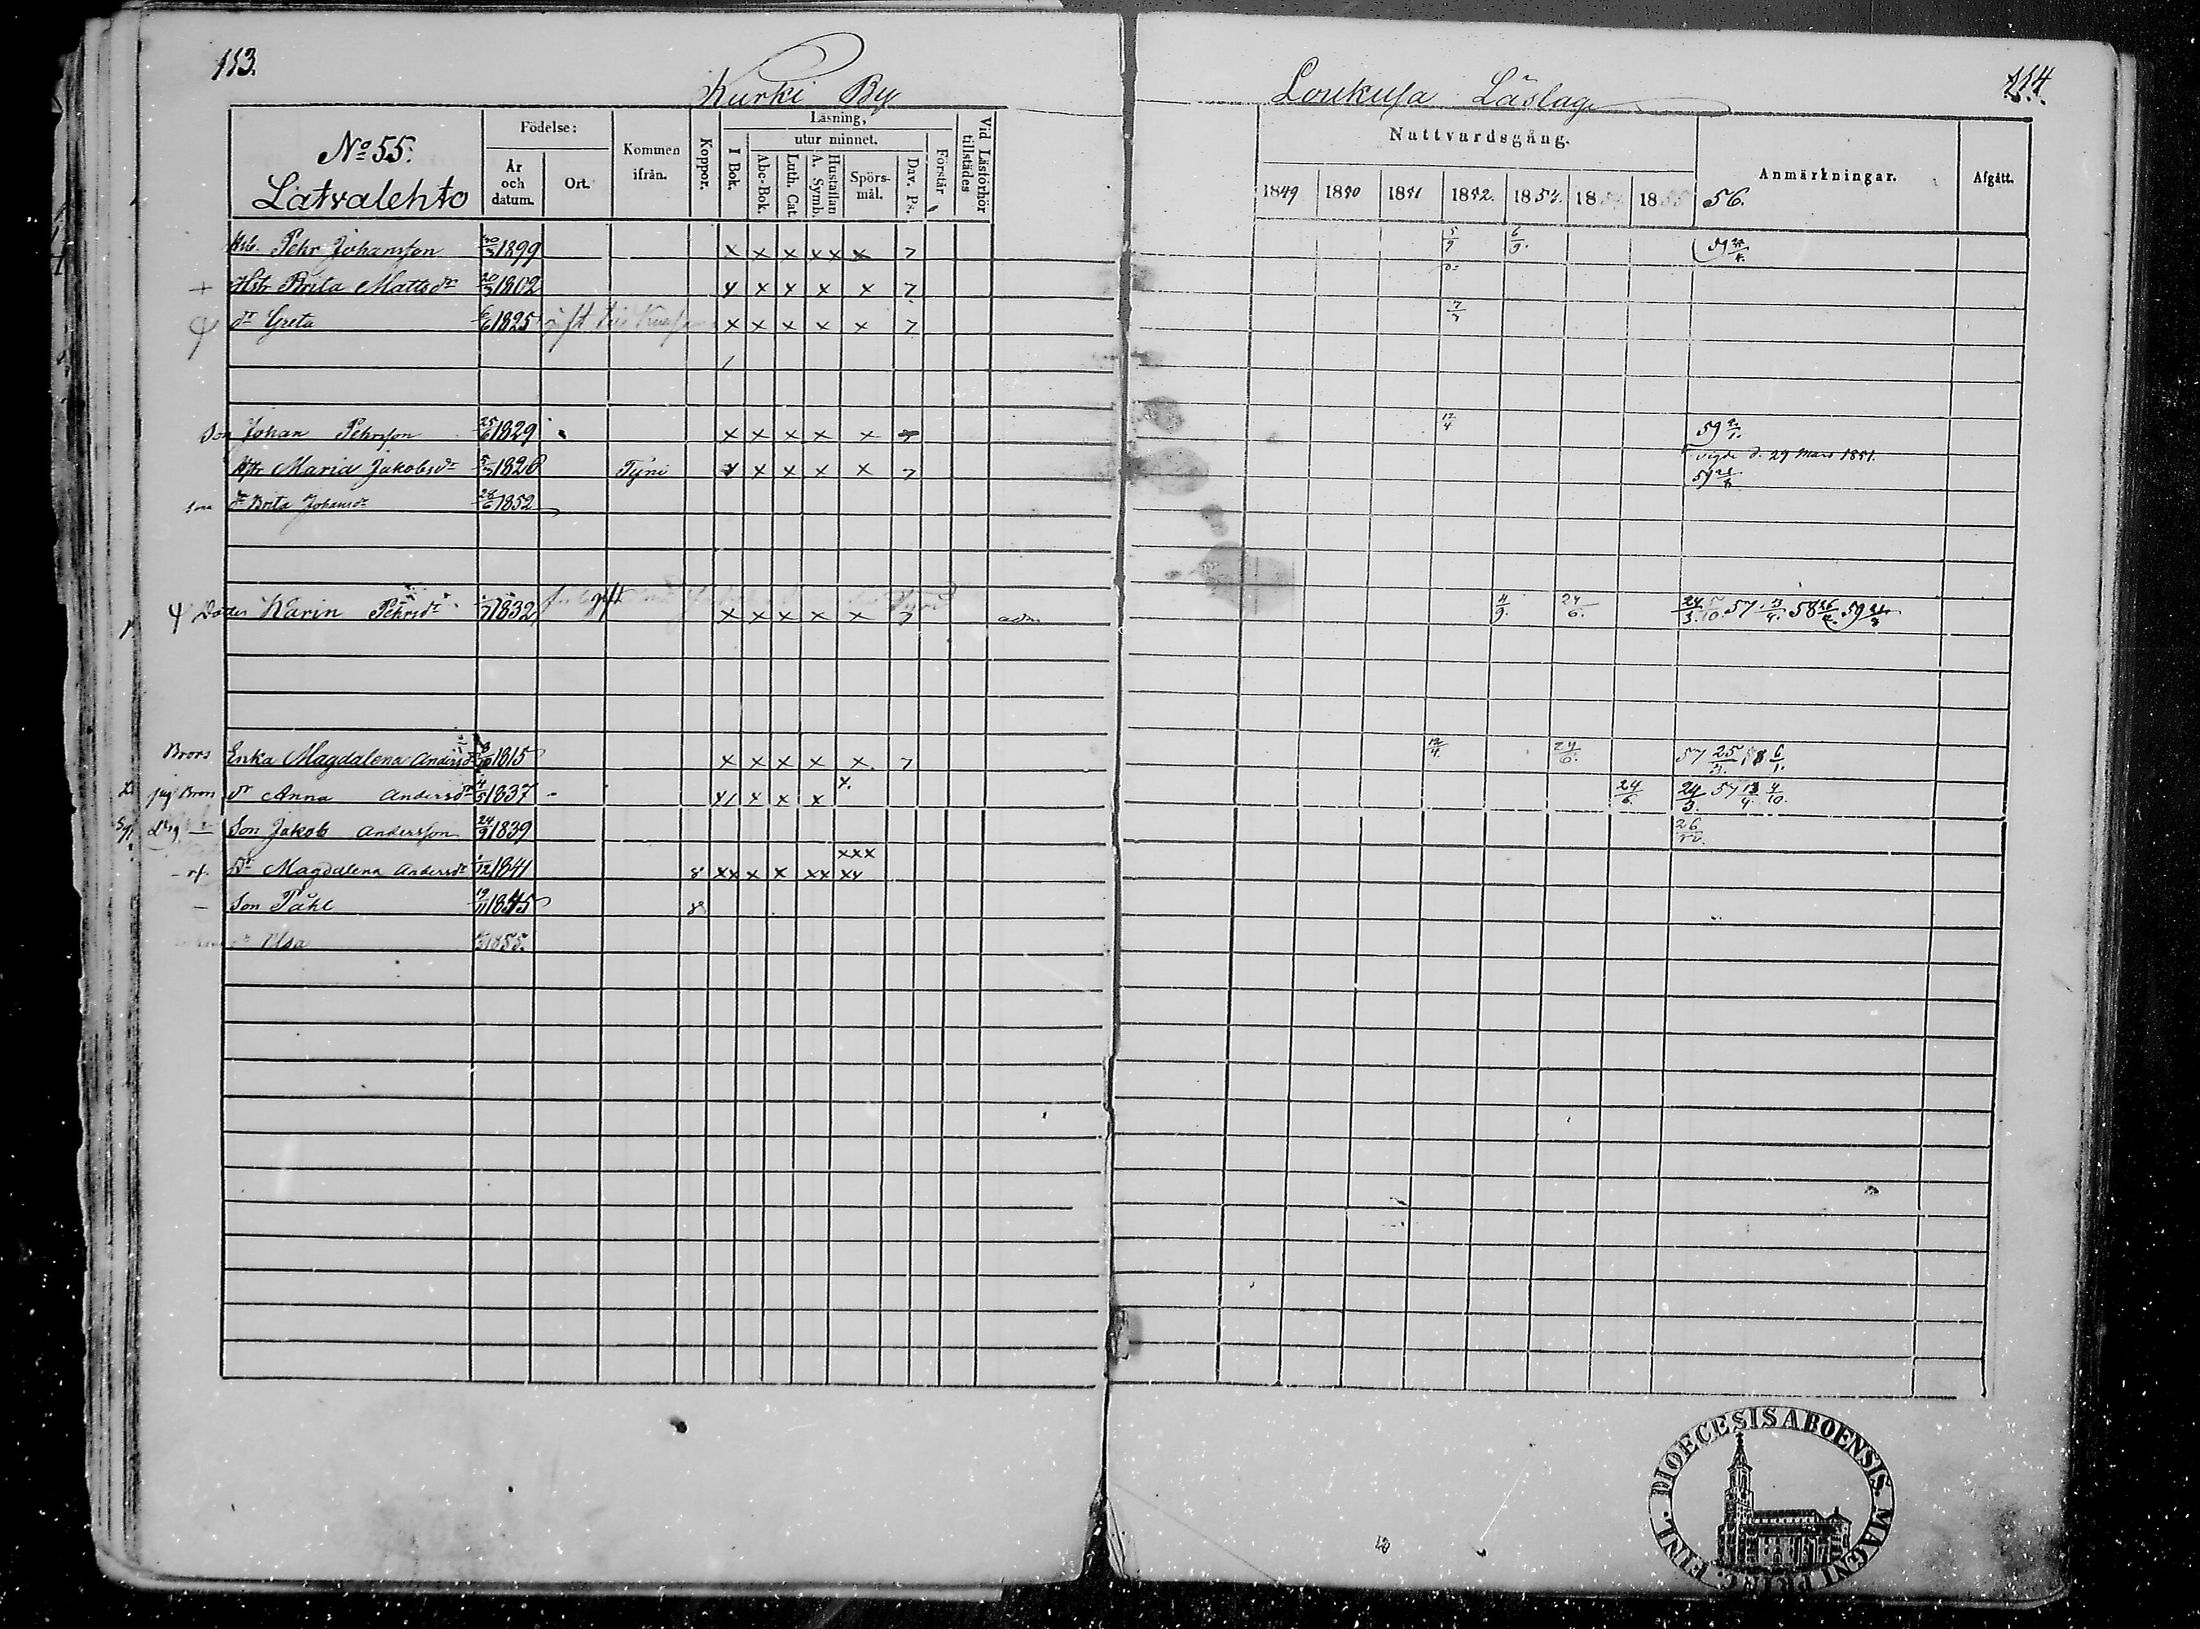 113.
Kurki By
No 55.
Latvalehto
Födelse:
År och datum.
Ort.
Kommen ifrån.
Koppor.
Läsning,
I Bok.
utur minnet.
Abc-Bok.
Luth. Cat.
Hustaflan A. Symb.
Spörs-mål.
Dav. Ps.
Förstår
Vid Läsförhör tillstädes
Hsb. Pehr Johansson 1899 x x x x x x 7
+ Hstr Brita Mattsdr 20/3 1802 x x x x x 7
dr Greta 6/6 1825 x x x x x 7
Son Johan Pehrsson 25/6 1829 x x x x x 7
Hstr Maria Jakobsdr 1826 Tyni x x x x x 7
dr Brita Johansdr 28/6 1852
Dotter Karin Pehrsdr 1832 x x x x x 7 adm
Brors Enka Magdalena Andersdr 1815 x x x x x 7
Brors dr Anna Andersdr 4/5 1837 x x x x.
Son Jakob Andersson 24/9 1839
xxx
Dr Magdalena Andersdr 1/12 1841 8 xx x x xx xx
Son Påhl 19/11 1845 8
dr Elsa 1855.
Loukusa Läslag
114
Nattvardsgång.
1849 1850 1851 1852. 1853. 18 18
56.
Anmärkningar.
Afgått.
5/9 6/9.
7/3
12/4 59
vigde d. 29 Mars 1851.
59
4/9. 24/6. 24/3. 57 58 26 59
12/4. 24/6. 57 25/3. 58 6/1.
24/6. 24/3. 57 13/4. 4/10.
26
DIOECESIS ABOENSIS. MAGNI PRINC. FINL.